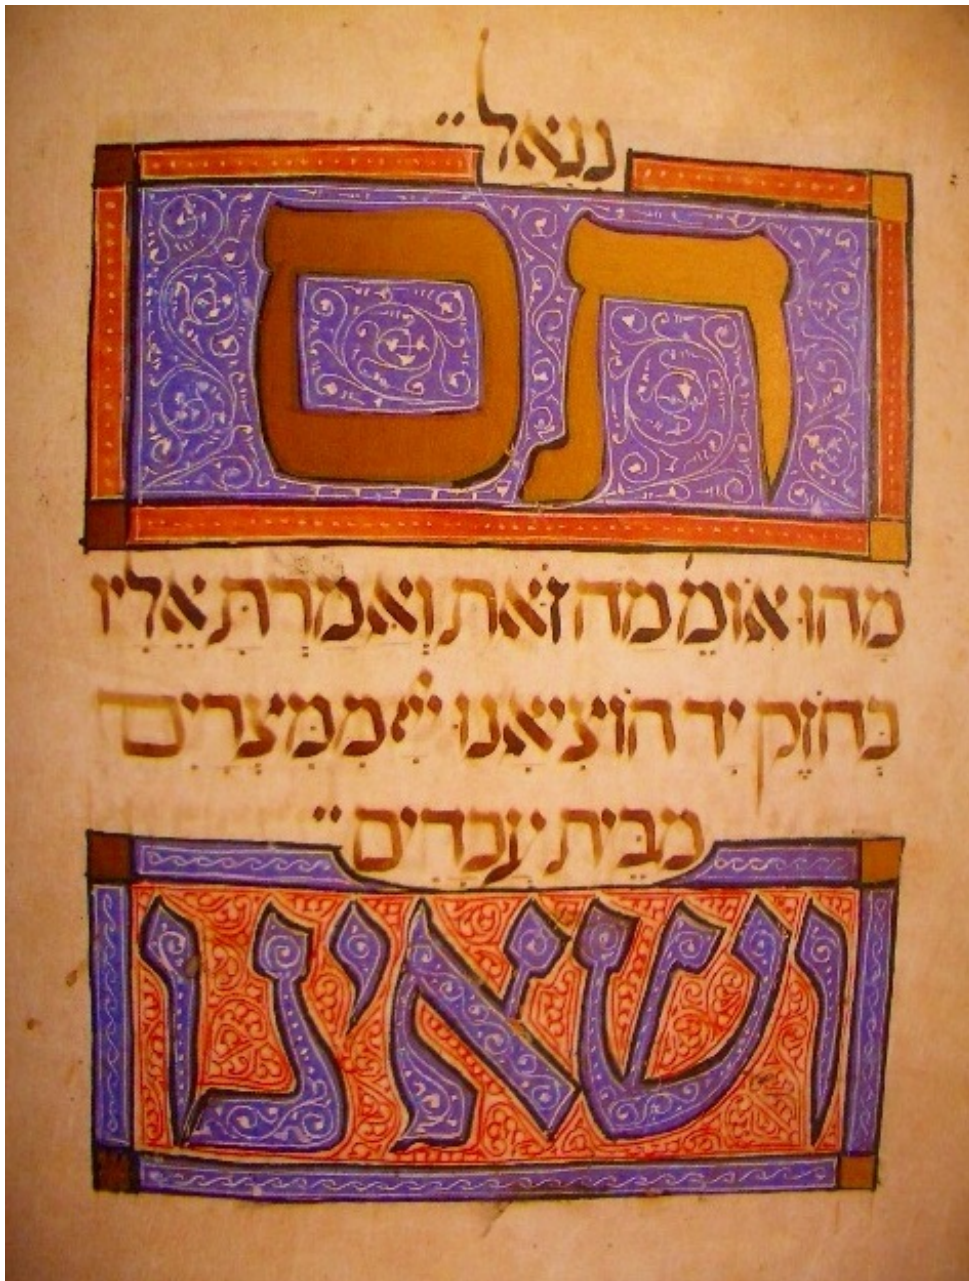 נגאל
תם
מהו אומ מה זאת ואמרת אליו
בחזק יד הוציאנו יי ממצרים
מבית עבדים
ושאינו